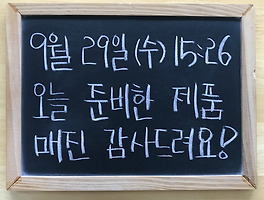 9월 29일 (수) 15:26
오늘 준비한 제품
매진 감사드려요!